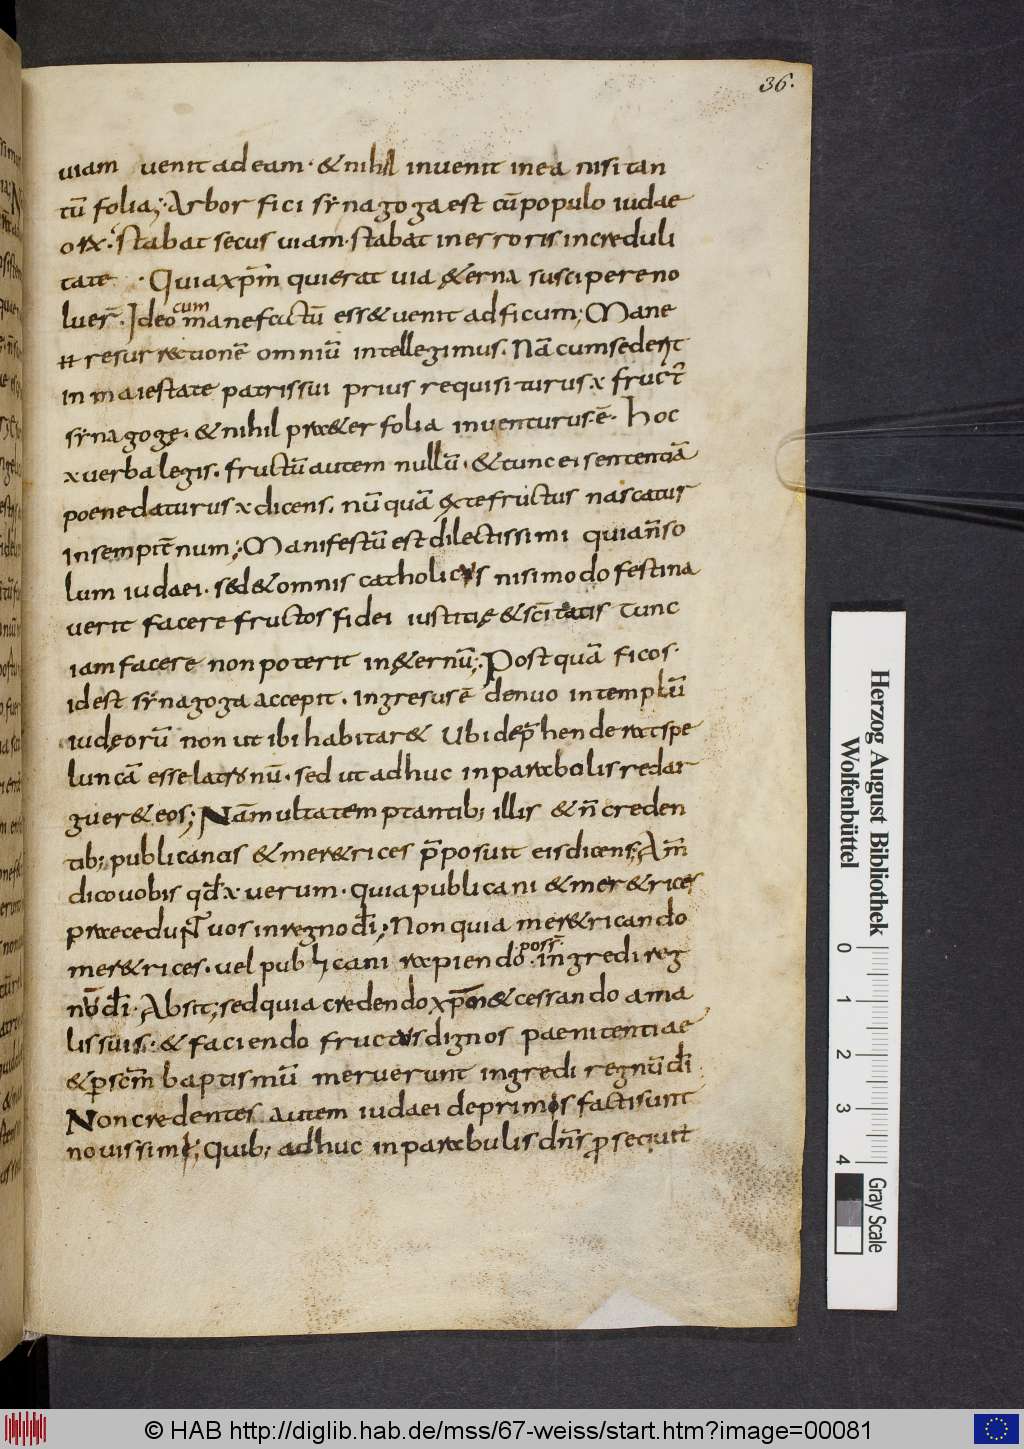 36.
uiam uenit ad eam · & nihil inuenit in ea nisi tan
tū folia; Arbor fici synagoga est cū populo iudae
orx · stabat secus uiam · stabat in erroris increduli
tate · Quia xp̄m qui erat uia &erna suscipere no
luer̄ · Ideo cum mane factū ess& uenit ad ficum; Mane
resurrectionē omniū intellegimus · Nā cum sederit
in maiestate patris sui prius requisiturus x fruct̄
synagogę · & nihil praeter folia inuenturus ē · hoc
x uerba legis · fructū autem nullū · & tunc ei sententiā
poene daturus x dicens · nūquā ex te fructus nascatur
in sempit̄num; Manifestū est dilectissimi quia n̄ so
lum iudaei · sed & omnis catholicus nisi modo festina
uerit facere fructos fidei iustitię & sc̄itatis tunc
iam facere non poterit in &ernū; Postquā ficos ·
id est synagoga accepit · ingresus ē denuo in templū
iudęorū non ut ibi habitar& Ubi dep̄henderat spe
luncā esse latronū · sed ut adhuc in parabolis redar
guer& eos; Nā multa temptantib; illis & n̄ creden
tib; publicanis & mer&rices p̄posuit eis dicens; Am̄
dico uobis qd̄ x uerum · quia publicani & mer&rices
praecedunt uos in regno dī; Non quia mer&ricando
mer&rices · uel publicani rapiendo · poss̄ · ingredi reg
nū dī · Absit; sed quia credendo xp̄on & cessando a ma
lis suis · & faciendo fructus dignos paenitentiae
& p sc̄m baptismū meruerunt ingredi regnū dī
Non credentes autem iudaei de primis facti sunt
nouissimi; Quib; adhuc in parabulis dn̄s prosequit̄
Herzog August Bibliothek
Wolfenbüttel
0 1 2 3 4
Gray Scale
© HAB http://diglib.hab.de/mss/67-weiss/start.htm?image=00081